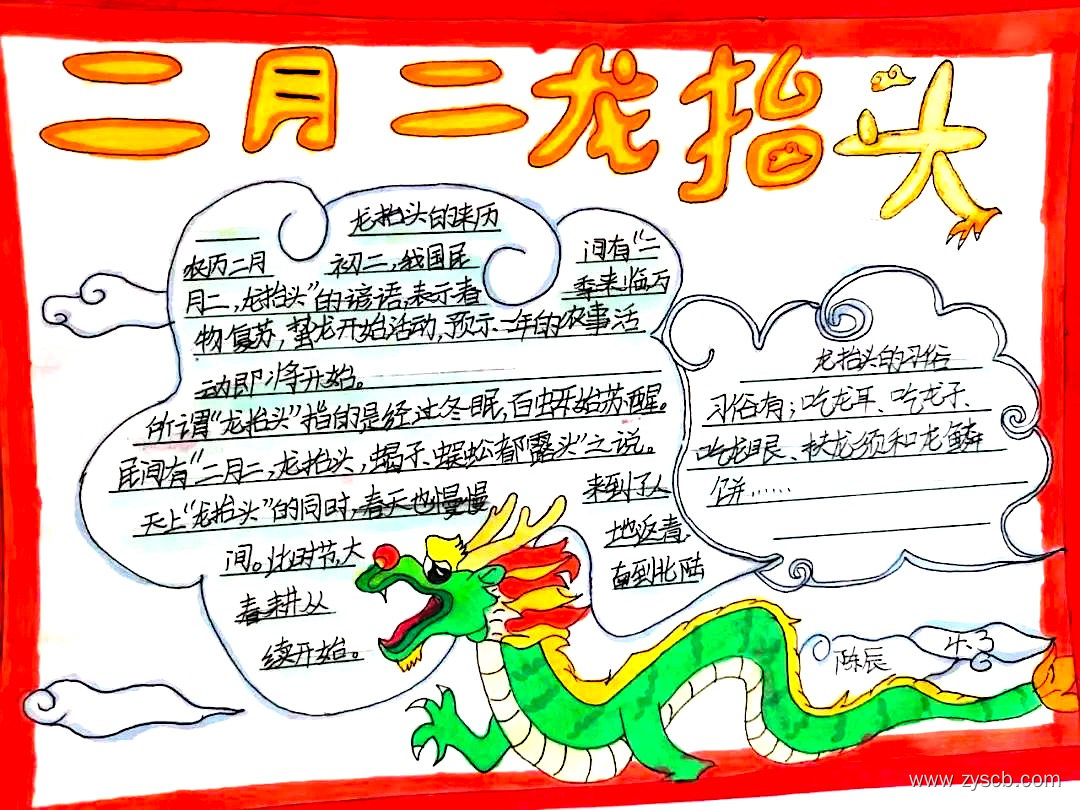 二月二龙抬头
龙抬头的来历
农历二月初二，我国民间有“二
月二，龙抬头”的谚语，表示春季来临万
物复苏，蛰龙开始活动，预示一年的农事活
动即将开始。
所谓“龙抬头”指的是经过冬眠，百虫开始苏醒。
民间有“二月二，龙抬头，蝎子、蜈蚣都露头”之说。
天上“龙抬头”的同时，春天也慢慢来到了人
间。此时节，大地返青，
春耕从南到北陆
续开始。
龙抬头的习俗
习俗有；吃龙耳、吃龙子、
吃龙眼、扶龙须和龙鳞
饼……
陈辰
4.3
www.zyscb.com